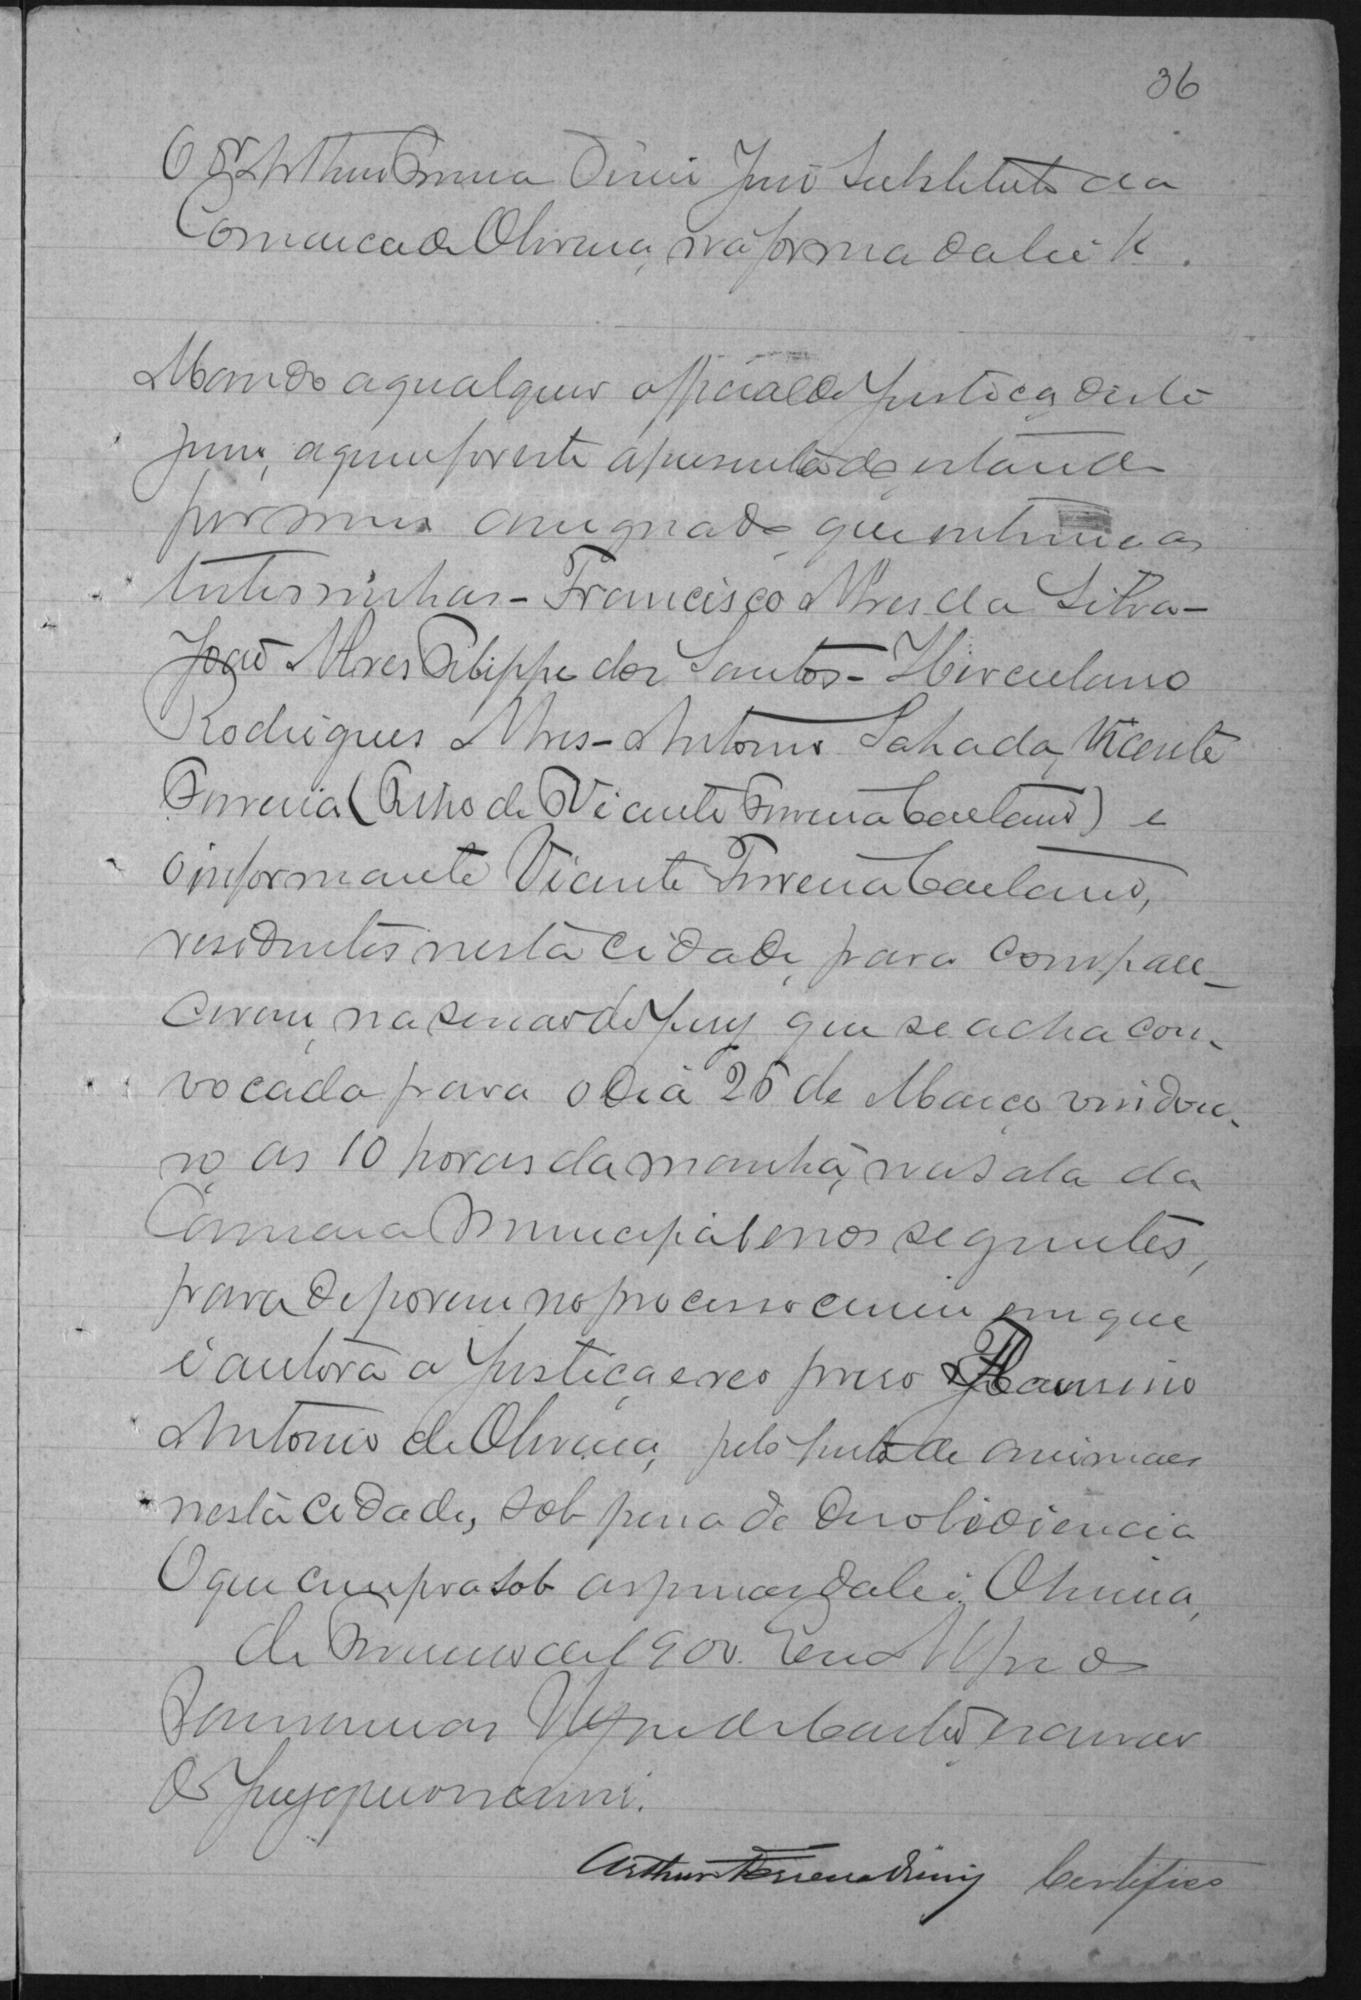 36
O Dr Arthur Ferreira Diniz Juiz Substituto da
Comarca de Oliveira, na forma da lei &.
Mando a qualquer official de Justiça deste
juizo, a quem for este apresentado, estando
por mim assignado, que intime as
testeminhas - Francisco Alves da Silva -
João Alves Felippe dos Santos - Herculano
Rodrigues Alves - Antonio Sahada, Vicente
Ferreira (filho de Vicente Ferreira Caetano) e
o informante Vicente Ferreira Caetano,
residentes nesta cidade, para compare-
cerem, na sessão do Jury que se acha con-
vocada para o dia 26 de Março vindou-
ro, as 10 horas da manhã, na sala da
Camara Municipal e nos seguintes,
para deporem no processo crime em que
é autora a Justiça e reo preso Flausino
Antonio de Oliveira, pelo furto de animaes
nesta cidade, sob pena de desobidiencia
O que cumpra sob as penas da lei. Oliveira,
de Fevereiro de 1900. Eu
de Castro, escrivão
do Jury, o escrevi.
Arthur Ferreira Diniz Certifico